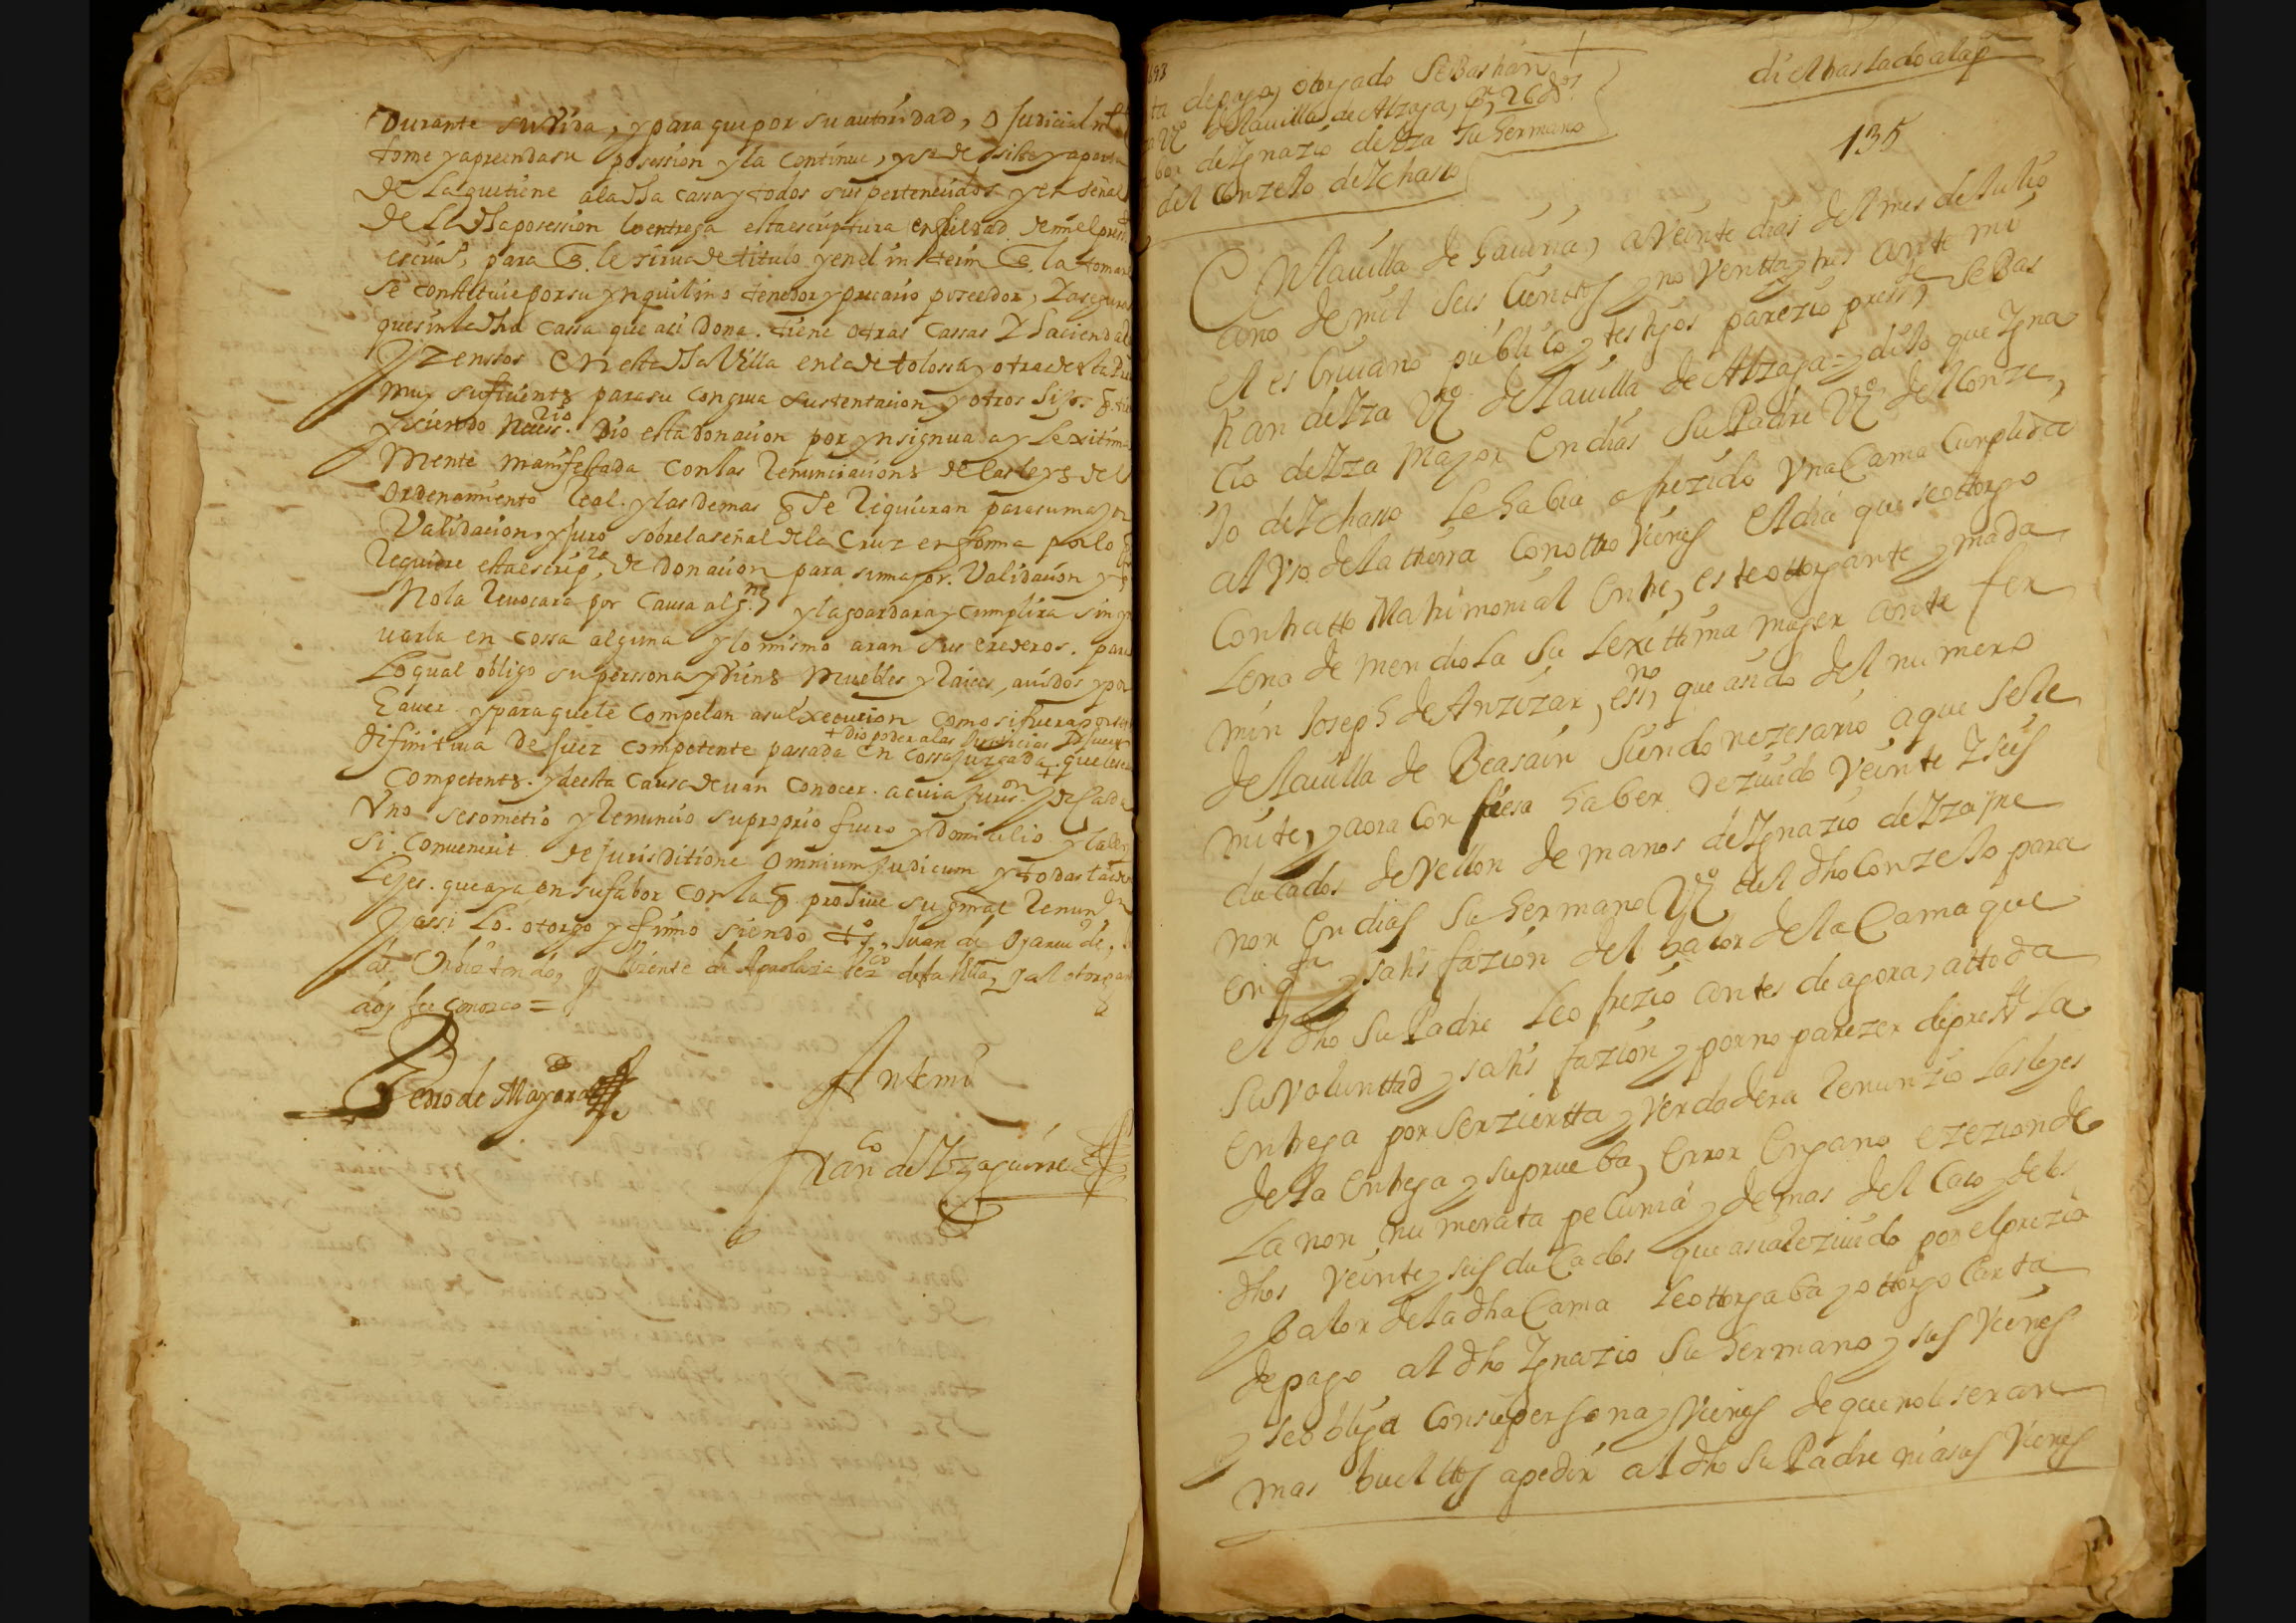 Durante su Vida, y para que por su autoridad, o Judicialm.te
tome y apreenda su posession y la continue, y se desiste y aparta
de la que tiene a la dha cassa y todos sus pertenecidos y en señal
de la dha posession le entrega esta escriptura en fieldad de mi el pres.
escriu.º, para q. le sirua de titulo y en el in terim q. la tomare
se constituie por su ynquilino tenedor y precario poseedor, y asegura
que sin la dha cassa que asi dona. tiene otras cassas y hacienda
y zenssos en esta dha Villa en la de tolossa y otra de
muy sufficient8 para su congrua sustentacion y otros hijos
y siendo Necess.rio dio esta donacion por ynsignuada y lexitima
mente manifestada con las Renunciacion8 de las ley8 del
ordenamiento Real. y las demas q se Requieran para su mayor
Validacion, y juro sobre la señal de la Cruz en forma por lo q
Requiere esta escrip.ra de donacion para su mayor. Validacion y
No la Reuocara por Causa alg.na y la goardara y cumplira sin
uarla en cossa alguna y lo mismo aran sus erederos. para
Lo qual obligo su perssona y vien8 muebles y Raices, auidos y por
hauer. y para que le compelan a su execucion como si fuera por
+ dio poder a las Justicias y Juezes
difinitiua de Juez competente passada en cossa juzgada. que
Competent8. y de esta Causa deuan conocer. a cuia juris.on y de cada
Vno se sometio y Renuncio su proprio fuero y Domicilio y la ley
Si. Conuenerit de jurisditione omnium Judicum y todas las
Leyes. que aya en su fabor con la q. prohiue su gnral Renun.on
Y assi Lo. otorgo y firmo siendo t.os Juan de
y Vizente de Vez.co desta Villa, y al otorgante
doy fee conozco =
Pedro de Mayora
Ante mi
Fran.co de Yzaguirre
1693
ta de pago, otorgado Sebastian
Vº de la uilla de Alzaga, de 26 d.os
bor de Ygnazio de Yza su hermano
del Conzejo de Ychasso
di el traslado a la p.
135
En la uilla de Gauiria, a Veinte dias del mes de Jullio
año de mil seis Cienttos y no Ventta y tres ante mi
el es Criuano publico y testigos parezio press.te Sebas
tian de Yza Vº de la uilla de Alzaga = y dixo que Ygna
cio de Yza mayor en dias su Padre Vº del Conze
Jo de Ychasso le habia o frezido Vna Cama Cumplida
al Vso de la tierra Con otros Vienes el dia que se ottorgo
Contratto Matrimonial entre este ottorgante y mada
lena de mendiola su lexittima muger ante fer
min Joseph de Anzizar, ess.no que a sido del numero
de la uilla de Beasain siendo nezesario a que se Re
mite, y aora Con fiesa haber rezuido Veinte y seis
ducados de vellon de manos de Ygnazio de Yza me
nor en dias su hermano Vº del dho Conzejo para
en p.te y satis fazion del balor de la Cama que
el dho su Padre le o frezio antes de agora, a tto da
su Voluntad y satis fazion y por no parezer de press.te La
entrega por ser zierta y Verdadera Renunzio las leyes
de la entrega y su prueba, error engaño ezezion de
la non nu merata pecunia y demas del Caso y de los
dhos Veinte y seis ducados que asi a rezuido por el prezio
y balor de la dha Cama le ottorgaba y ottorgo Carta
de pago al dho Ygnazio su hermano y sus Vienes
y se obliga Con su persona y Vienes de que no le seran
mas bueltos a pedir al dho su Padre ni a sus Vienes